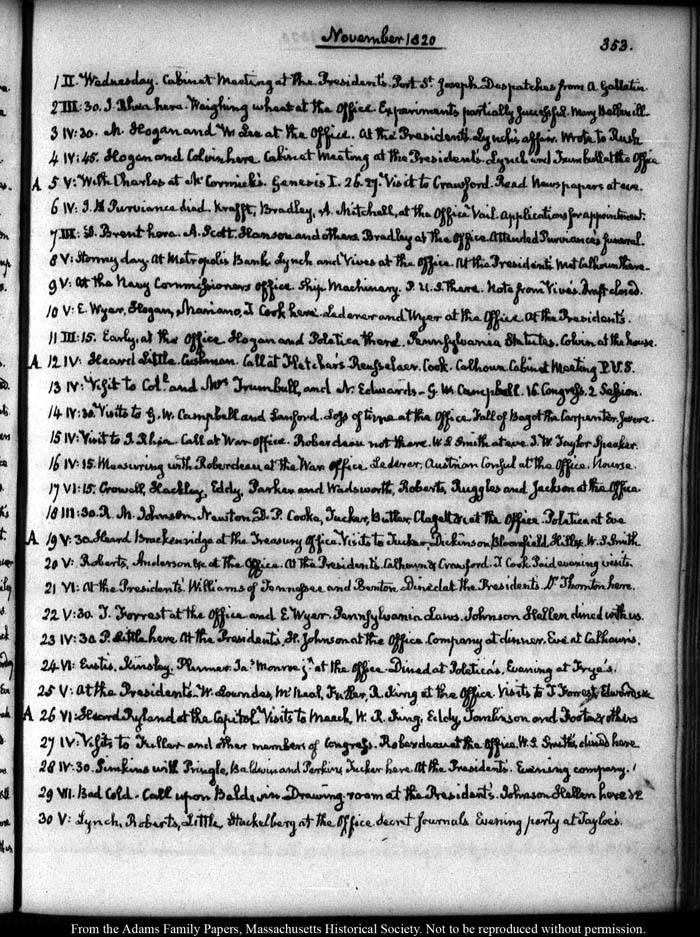 November 1820
353.
1 II. Wednesday. Cabinet Meeting at the President's. Port St. Joseph. Despatches from A Gallatin.
2 III:30. J. Rhea here. Weighing wheat at the Office. Experiments partially successful. Mary Buller ill.
3 IV:30. M. Hogan and W Lee at the Office. At the President's. Lynch's affair. Wrote to Rush
4 IV:45. Hogan and Colvin here. Cabinet Meeting at the President's. Lynch and Trumbull at the Office
A 5 V: With Charles at McCormick's. Genesis I. 26.27. Visit to Crawford. Read Newspapers at eve.
6 IV: J. H Purviance died. Krafft, Bradley, A. Mitchell, at the Office Vail. Applications for appointment.
7 III: D. Brent here. A. Scott. Hanson and others. Bradley at the Office. Attended Purviance's funeral.
8 V: Stormy day. At Metropolis Bank. Lynch and Vives at the Office. At the President's. Met Calhoun there.
9 V: At the Navy Commissioners office. Ship Machinery. P. U. S. there. Note from Vives. Draft closed.
10 V: E. Wyer, Hogan, Mariano, T Cook here. Lederer and Wyer at the Office. At the President's.
11 III:15. Early at the Office. Hogan and Poletica there. Pennsylvania Statutes. Colvin at the house.
A 12 IV: Heard Little. Cushman. Call at Fletcher's Rensselaer. Cook. Calhoun Cabinet Meeting P.U.S.
13 IV: Visit to Coll. and Mrs Trumbull, and N. Edwards - G W Campbell. 16 Congress. 2 Session.
14 IV:30. Visits to G. W. Campbell and Sanford. Loss of time at the Office. Fall of Bagot the Carpenter. Severe.
15 IV: Visit to J. Rhea. Call at War office. Roberdeau not there. W. S Smith at eve J. W. Taylor Speaker.
16 IV:15. Measuring with Roberdeau at the War Office. Lederer, Austrian Consul at the Office. Nourse.
17 VI:15. Crowell, Hackley, Eddy, Parker and Wadsworth, Roberts, Ruggles and Jackson at the Office
18 III:30. R. M. Johnson, Newton, D. P. Cooke, Tucker, Butler, Clagett &c at the Office. Poletica at Eve
A 19 V:30. Heard Breckenridge at the Treasury Office. Visits to Tucker, Dickinson Bloomfield Hill &c. W. S Smith
20 V: Roberts, Anderson &c at the Office. At the President's. Calhoun & Crawford. T Cook Paid evening visits.
21 VI: At the President's. Williams of Tennessee and Benton. Dined at the President's Dr Thornton here.
22 V:30. T. Forrest at the Office and E Wyer. Pennsylvania Laws. Johnson Hellen dined with us.
23 IV:30. P. Little here. At the President's. H. Johnson at the Office. Company at dinner. Eve at Calhoun's.
24 VI: Eustis, Kinsley. Plumer. Jas. Monroe jr. at the Office. Dined at Poletica's. Evening at Frye's.
25 V: At the President's. W. Lowndes, McNeal, Fuller, R. King at the Office. Visits to T Forrest, Edwards &c
A 26 VI: Heard Ryland at the Capitol. Visits to Meech, W. R. King. Eddy, Tomlinson and Foot & others
27 IV: Visits to Fuller and other members of Congress. Roberdeau at the Office. W. S Smith's dined here
28 IV:30. Simkins with Pringle, Baldwin and Perkins Tucker here. At the President's. Evening company.
29 VII. Bad Cold. Call upon Baldwin Drawing-room at the President's. Johnson Hellen here &c
30 V: Lynch, Roberts, Little, Stackelberg at the Office. Secret Journals. Evening party at Tayloe's.
From the Adams Family Papers, Massachusetts Historical Society. Not to be reproduced without permission.